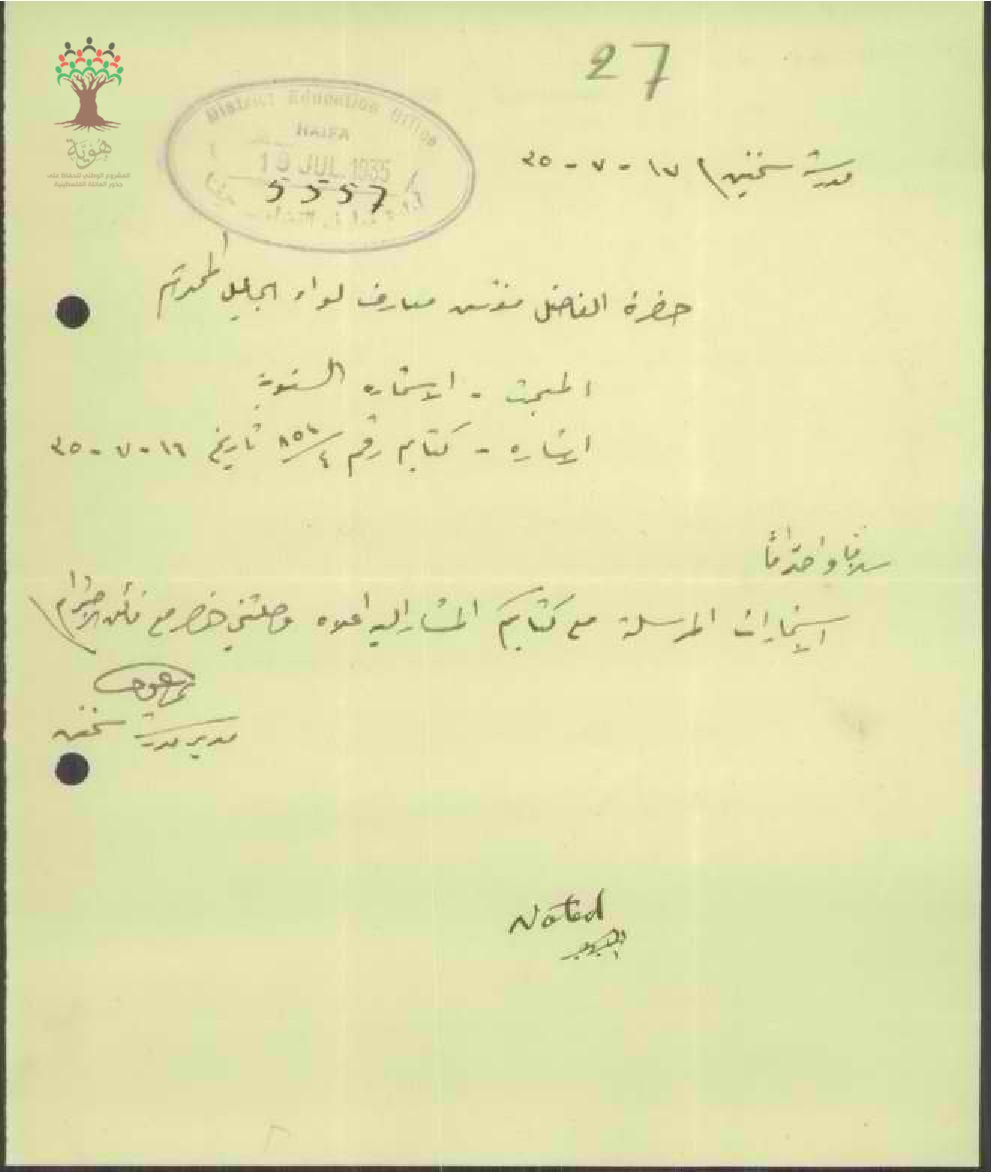 27
هوية
المشروع الوطني للحفاظ على
جذور العائلة الفلسطينية
District Education Office
HAIFA
19 JUL 1935
5557
مدرسة سخنين ١٧ - ٧ - ٣٥
حضرة الفاضل مفتش معارف لواء الجليل المحترم
المبحث - الاستماره السنوية
اشاره - كتابكم رقم ٤/٨٥٦ تاريخ ١٦ - ٧ - ٣٥
سلاما واحتراما
الاستمارات المرسلة مع كتابكم المشار اليه اعلاه وصلتني مع فائق الاحترام
مدير مدرسة سخنين
Noted